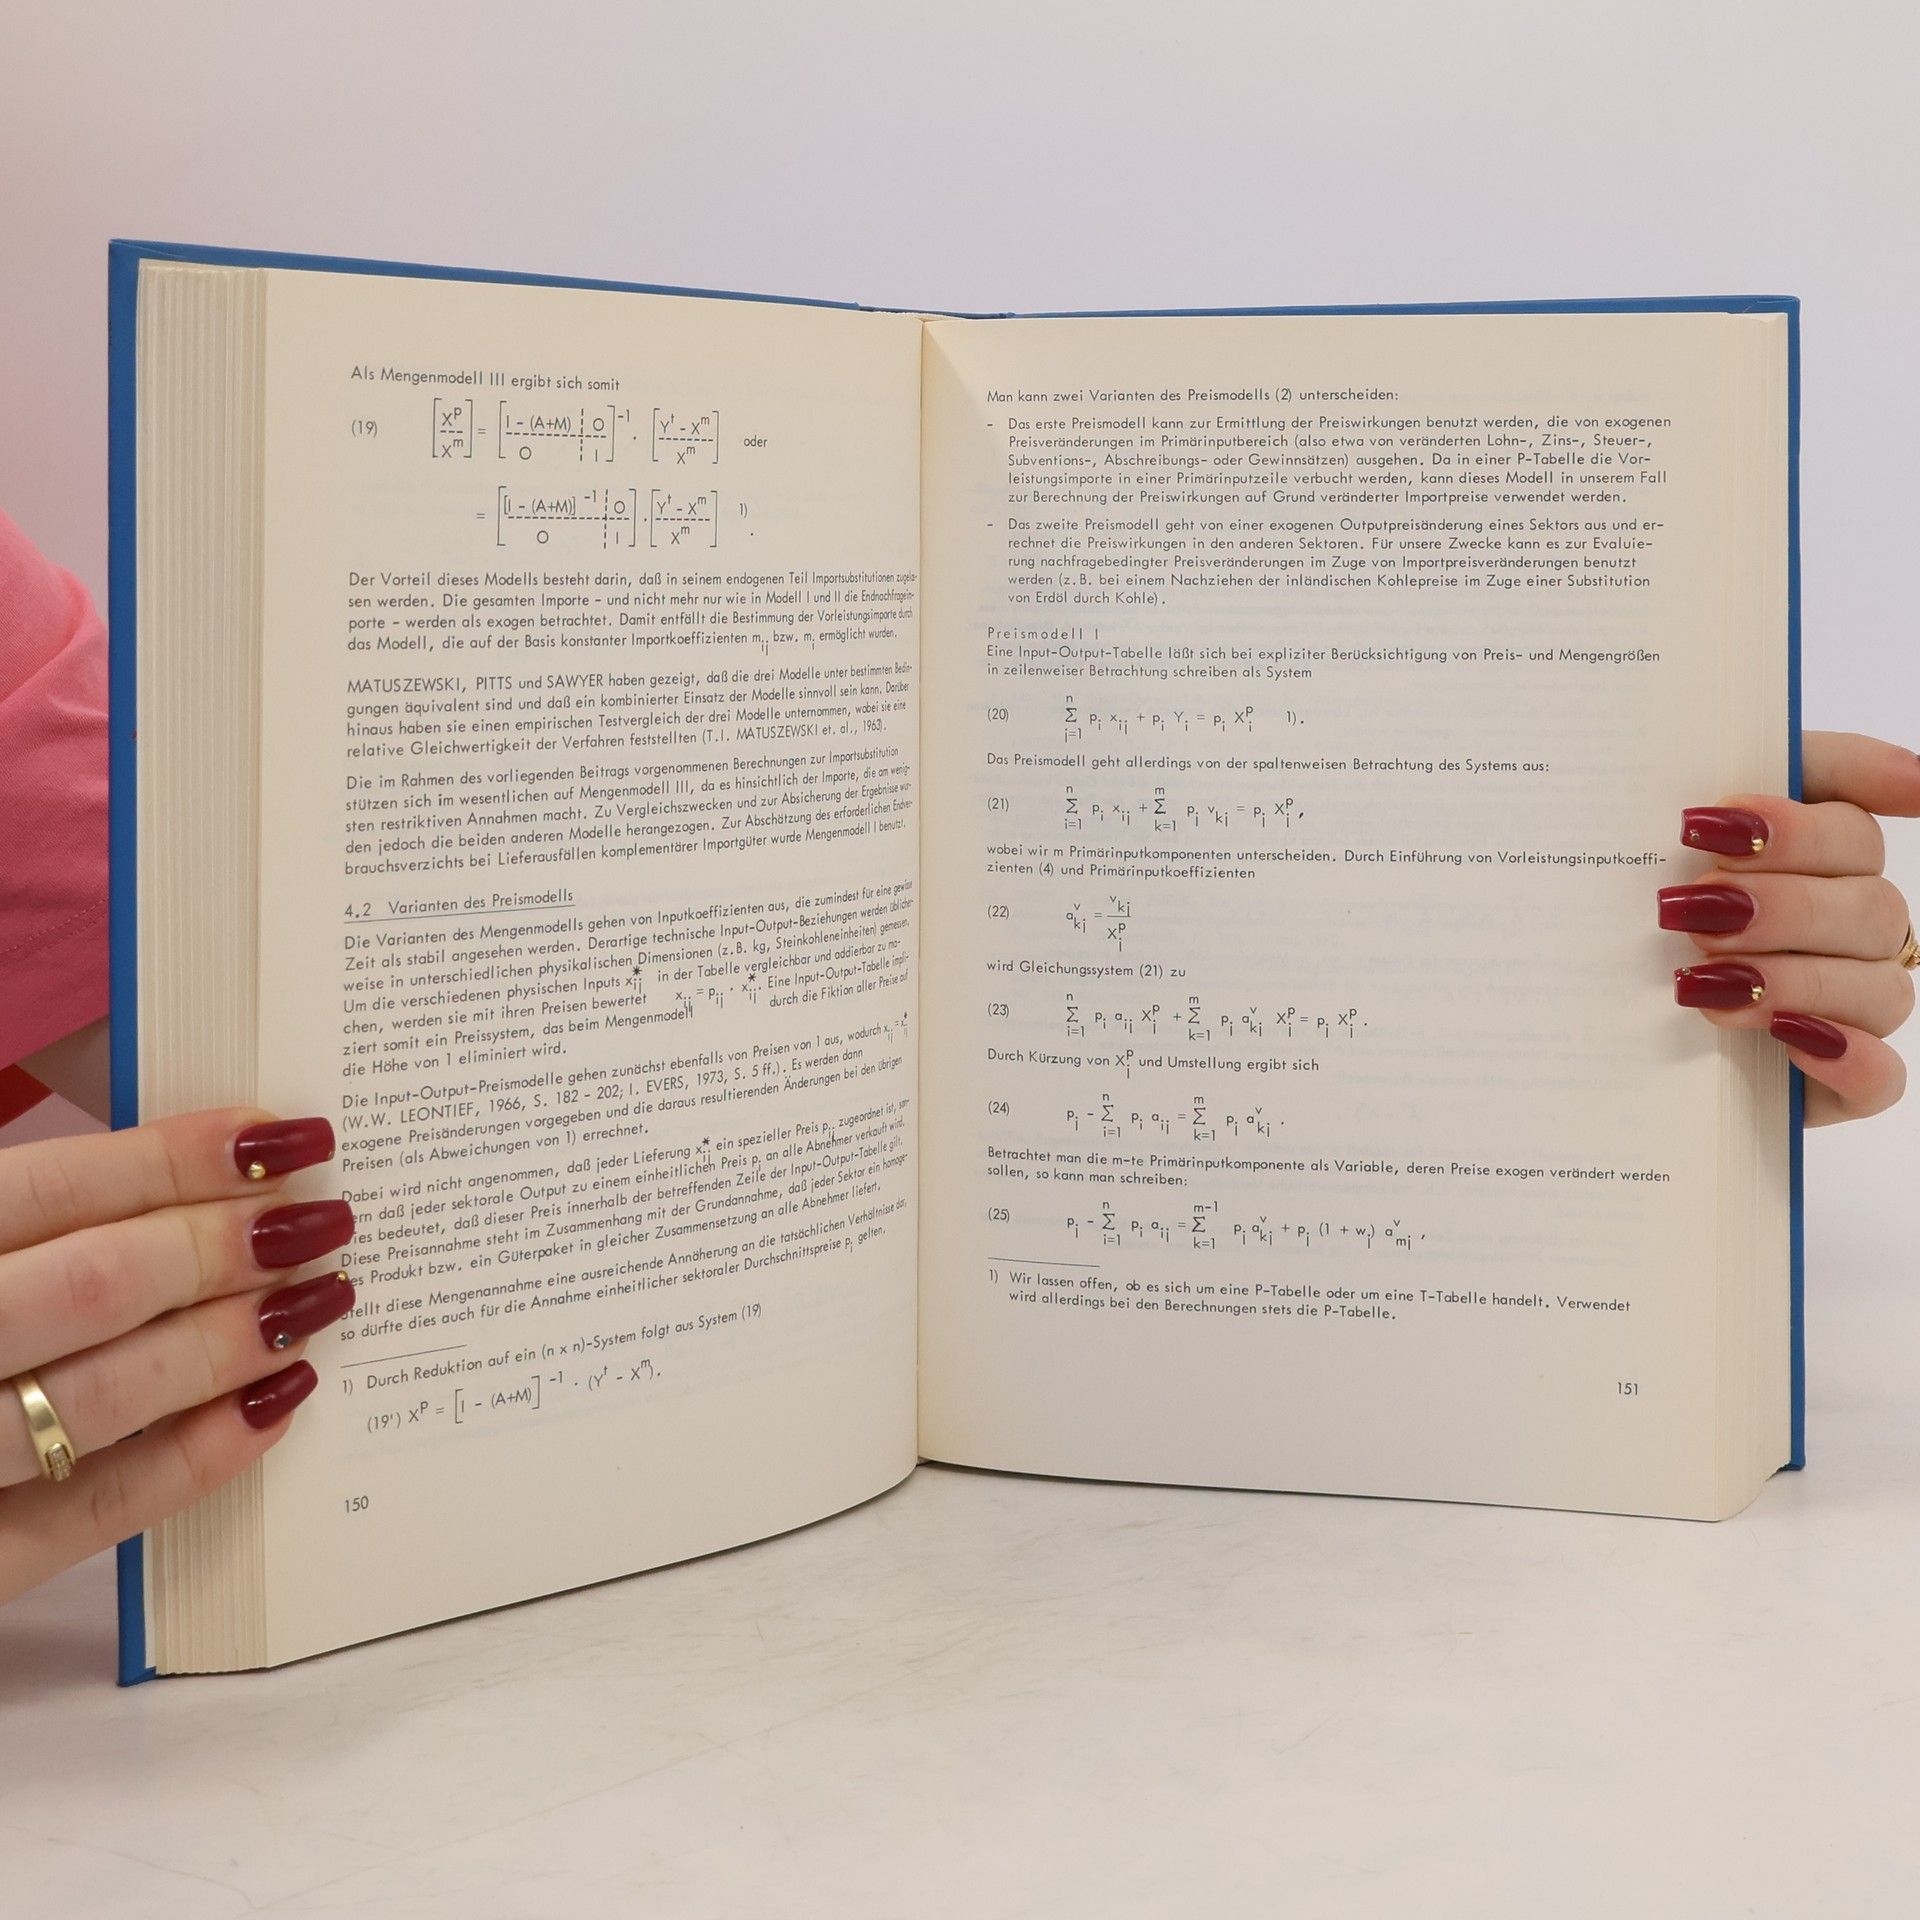 Als Mengenmodell III ergibt sich somit
(19) [X^p / X^m] = [I - (A+M) ¦ O / O ¦ I]^-1 · [Y^t - X^m / X^m] oder
= [[I - (A+M)]^-1 ¦ O / O ¦ I] · [Y^t - X^m / X^m] 1) .
Der Vorteil dieses Modells besteht darin, daß in seinem endogenen Teil Importsubstitutionen zugelas-
sen werden. Die gesamten Importe - und nicht mehr nur wie in Modell I und II die Endnachfrageim-
porte - werden als exogen betrachtet. Damit entfällt die Bestimmung der Vorleistungsimporte durch
das Modell, die auf der Basis konstanter Importkoeffizienten m_ij bzw. m_i ermöglicht wurden.
MATUSZEWSKI, PITTS und SAWYER haben gezeigt, daß die drei Modelle unter bestimmten Bedin-
gungen äquivalent sind und daß ein kombinierter Einsatz der Modelle sinnvoll sein kann. Darüber
hinaus haben sie einen empirischen Testvergleich der drei Modelle unternommen, wobei sie eine
relative Gleichwertigkeit der Verfahren feststellten (T.I. MATUSZEWSKI et. al., 1963).
Die im Rahmen des vorliegenden Beitrags vorgenommenen Berechnungen zur Importsubstitution
stützen sich im wesentlichen auf Mengenmodell III, da es hinsichtlich der Importe, die am wenig-
sten restriktiven Annahmen macht. Zu Vergleichszwecken und zur Absicherung der Ergebnisse wur-
den jedoch die beiden anderen Modelle herangezogen. Zur Abschätzung des erforderlichen Endver-
brauchsverzichts bei Lieferausfällen komplementärer Importgüter wurde Mengenmodell I benutzt.
4.2 Varianten des Preismodells
Die Varianten des Mengenmodells gehen von Inputkoeffizienten aus, die zumindest für eine gewisse
Zeit als stabil angesehen werden. Derartige technische Input-Output-Beziehungen werden üblicher-
weise in unterschiedlichen physikalischen Dimensionen (z.B. kg, Steinkohleneinheiten) gemessen.
Um die verschiedenen physischen Inputs x*_ij in der Tabelle vergleichbar und addierbar zu ma-
chen, werden sie mit ihren Preisen bewertet x_ij = p_ij · x*_ij. Eine Input-Output-Tabelle impli-
ziert somit ein Preissystem, das beim Mengenmodell durch die Fiktion aller Preise auf
die Höhe von 1 eliminiert wird.
Die Input-Output-Preismodelle gehen zunächst ebenfalls von Preisen von 1 aus, wodurch x_ij = x*_ij
(W.W. LEONTIEF, 1966, S. 182 - 202; I. EVERS, 1973, S. 5 ff.). Es werden dann
exogene Preisänderungen vorgegeben und die daraus resultierenden Änderungen bei den übrigen
Preisen (als Abweichungen von 1) errechnet.
Dabei wird nicht angenommen, daß jeder Lieferung x*_ij ein spezieller Preis p_ij zugeordnet ist, son-
ern daß jeder sektorale Output zu einem einheitlichen Preis p_i an alle Abnehmer verkauft wird.
ies bedeutet, daß dieser Preis innerhalb der betreffenden Zeile der Input-Output-Tabelle gilt.
Diese Preisannahme steht im Zusammenhang mit der Grundannahme, daß jeder Sektor ein homoge-
es Produkt bzw. ein Güterpaket in gleicher Zusammensetzung an alle Abnehmer liefert.
tellt diese Mengenannahme eine ausreichende Annäherung an die tatsächlichen Verhältnisse dar,
so dürfte dies auch für die Annahme einheitlicher sektoraler Durchschnittspreise p_i gelten.
1) Durch Reduktion auf ein (n x n)-System folgt aus System (19)
(19') X^p = [I - (A+M)]^-1 · (Y^t - X^m).
150
Man kann zwei Varianten des Preismodells (2) unterscheiden:
- Das erste Preismodell kann zur Ermittlung der Preiswirkungen benutzt werden, die von exogenen
Preisveränderungen im Primärinputbereich (also etwa von veränderten Lohn-, Zins-, Steuer-,
Subventions-, Abschreibungs- oder Gewinnsätzen) ausgehen. Da in einer P-Tabelle die Vor-
leistungsimporte in einer Primärinputzeile verbucht werden, kann dieses Modell in unserem Fall
zur Berechnung der Preiswirkungen auf Grund veränderter Importpreise verwendet werden.
- Das zweite Preismodell geht von einer exogenen Outputpreisänderung eines Sektors aus und er-
rechnet die Preiswirkungen in den anderen Sektoren. Für unsere Zwecke kann es zur Evaluie-
rung nachfragebedingter Preisveränderungen im Zuge von Importpreisveränderungen benutzt
werden (z.B. bei einem Nachziehen der inländischen Kohlepreise im Zuge einer Substitution
von Erdöl durch Kohle).
Preismodell I
Eine Input-Output-Tabelle läßt sich bei expliziter Berücksichtigung von Preis- und Mengengrößen
in zeilenweiser Betrachtung schreiben als System
(20) Σ_{j=1}^{n} p_i x_ij + p_i Y_i = p_i X_i^p 1).
Das Preismodell geht allerdings von der spaltenweisen Betrachtung des Systems aus:
(21) Σ_{i=1}^{n} p_i x_ij + Σ_{k=1}^{m} p_j v_kj = p_j X_j^p,
wobei wir m Primärinputkomponenten unterscheiden. Durch Einführung von Vorleistungsinputkoeffi-
zienten (4) und Primärinputkoeffizienten
(22) a^v_kj = v_kj / X_j^p
wird Gleichungssystem (21) zu
(23) Σ_{i=1}^{n} p_i a_ij X_j^p + Σ_{k=1}^{m} p_j a^v_kj X_j^p = p_j X_j^p .
Durch Kürzung von X_j^p und Umstellung ergibt sich
(24) p_j - Σ_{i=1}^{n} p_i a_ij = Σ_{k=1}^{m} p_j a^v_kj .
Betrachtet man die m-te Primärinputkomponente als Variable, deren Preise exogen verändert werden
sollen, so kann man schreiben:
(25) p_j - Σ_{i=1}^{n} p_i a_ij = Σ_{k=1}^{m-1} p_j a^v_kj + p_j (1 + w_j) a^v_mj ,
1) Wir lassen offen, ob es sich um eine P-Tabelle oder um eine T-Tabelle handelt. Verwendet
wird allerdings bei den Berechnungen stets die P-Tabelle.
151